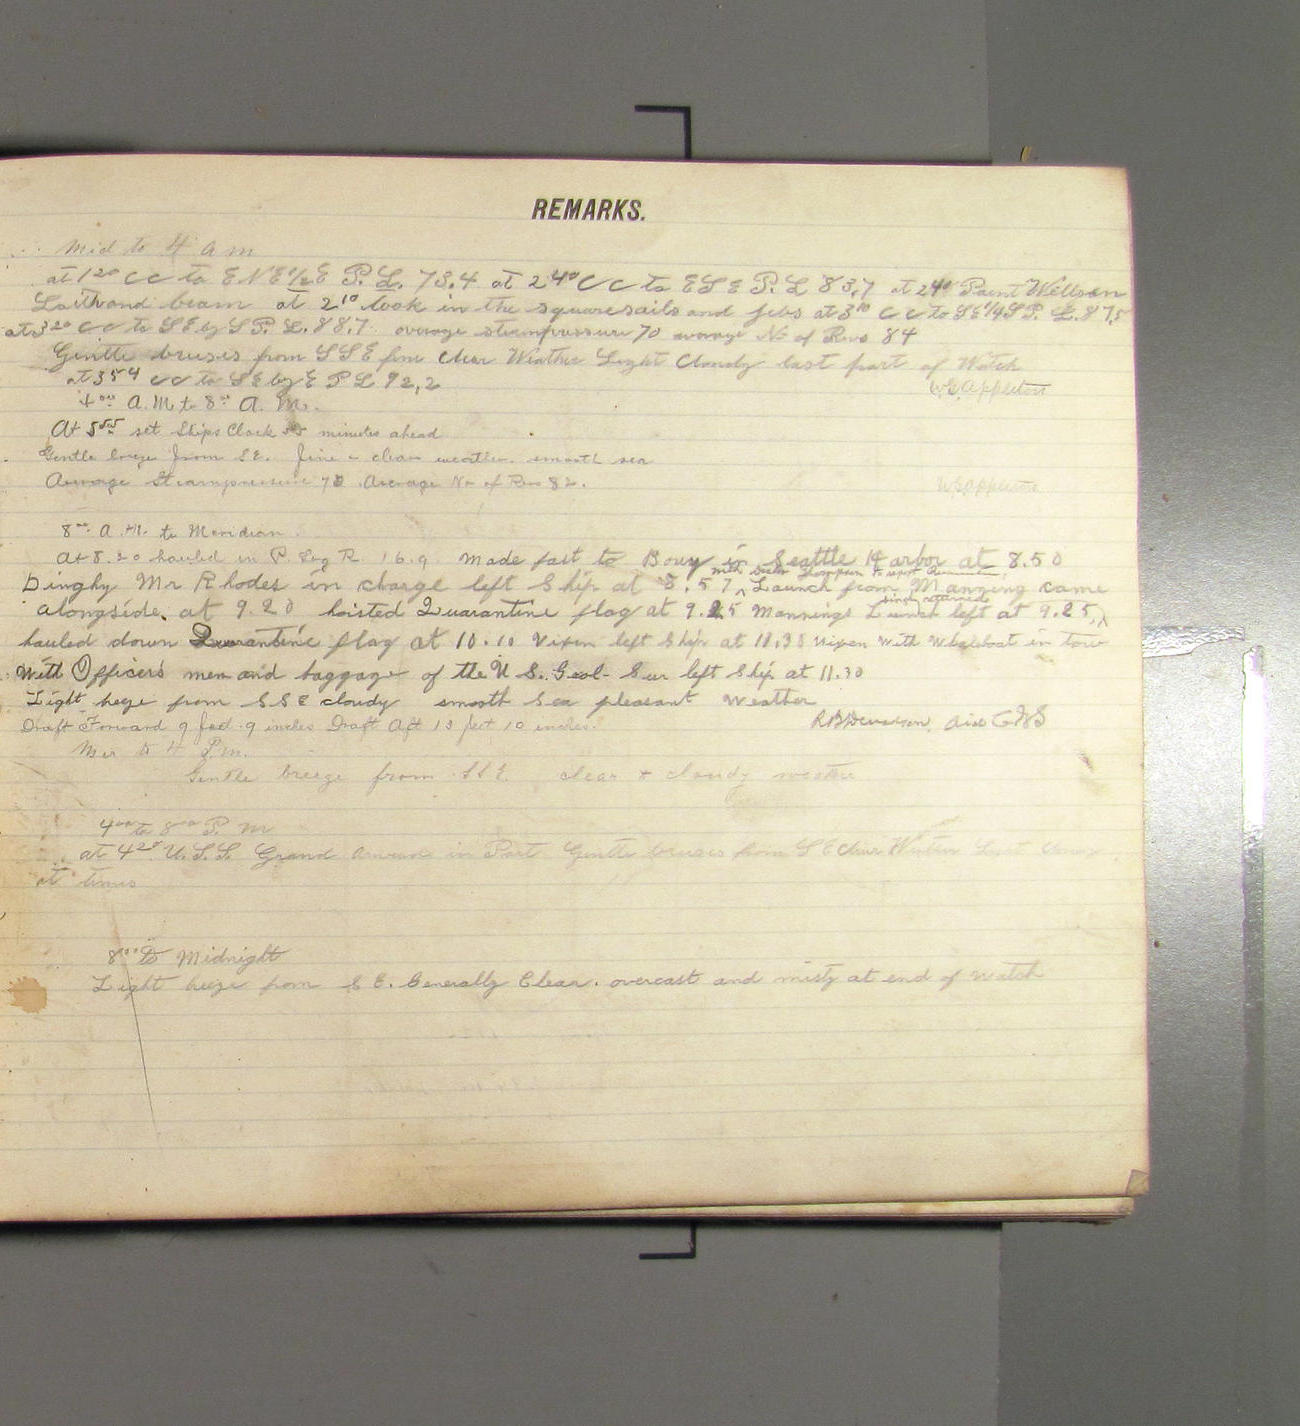 REMARKS.
Mid to 4 a m
at 1²⁰ cc to E N E ½ E P. L. 73.4 at 2⁴⁰ C c to E S E P. L 83,7 at 2⁴⁰ Point Willson
beam at 2¹⁰ took in the squaresails and jebs at 3¹⁰ C c to S E ¼ S P. L. 87,5
at 3²⁰ C c to S E by S P. L. 88,7 average steampressure 70 average No of Revs 84
Gentle breeses from S S E fine clear Weather Light Cloudy last part of Watch
at 3⁵⁴ cc to S E by E P L 92,2 W.E. Appleton
4⁰⁰ A. M to 8⁰⁰ A. M.
At 5 set Ships Clock minutes ahead
Gentle breeze from S E. fine & clear weather. smooth sea
Average Steampressure 70 Average No of Revs 82. W E Appleton
8⁰⁰ A. M. to Meridian
At 8.20 hauled in P. Log R. 16.9 Made fast to Bouy in Seattle Harbor at 8.50
with
Dinghy Mr Rhodes in charge left Ship at 8.57, Launch from Manning came
and returned
alongside. at 9.20 hoisted Quarantine flag at 9.25 Mannings Launch left at 9.25,
hauled down Quarantine flag at 10.10 Vixen left Ship at 11.30 Vixen with Whaleboat in tow
With Officers men and baggage of the U S. Geol- Sur left Ship at 11.30
Light breeze from S S E cloudy smooth Sea pleasant Weather
Draft Forward 9 feet 9 inches Draft Aft 13 feet 10 inches. R B Derickson, Aid C & G S
Mer to 4 P.m.
Gentle breeze from S S E. clear & cloudy weather
4⁰⁰ to 8⁰⁰ P. m
at 4²⁰ U. S. S. Grand arived in Port Gentle breeses from S E Clear Weather Light Cloudy
at times
8⁰⁰ to Midnight
Light breeze from S E. Generally Clear. overcast and misty at end of watch